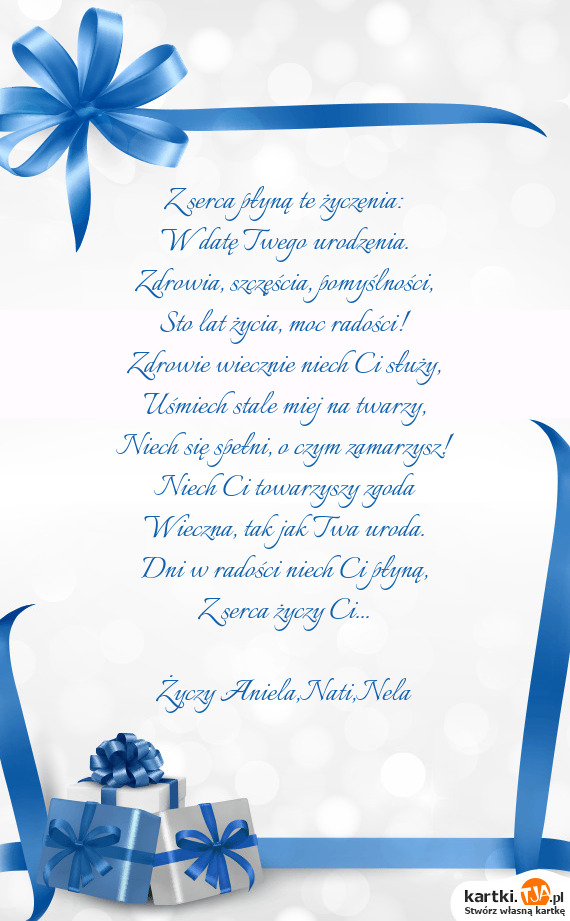 Z serca płyną te życzenia:
W datę Twego urodzenia.
Zdrowia, szczęścia, pomyślności,
Sto lat życia, moc radości!
Zdrowie wiecznie niech Ci służy,
Uśmiech stale miej na twarzy,
Niech się spełni, o czym zamarzysz!
Niech Ci towarzyszy zgoda
Wieczna, tak jak Twa uroda.
Dni w radości niech Ci płyną,
Z serca życzy Ci...
Życzy Aniela,Nati,Nela
kartki.TJA.pl
Stwórz własną kartkę